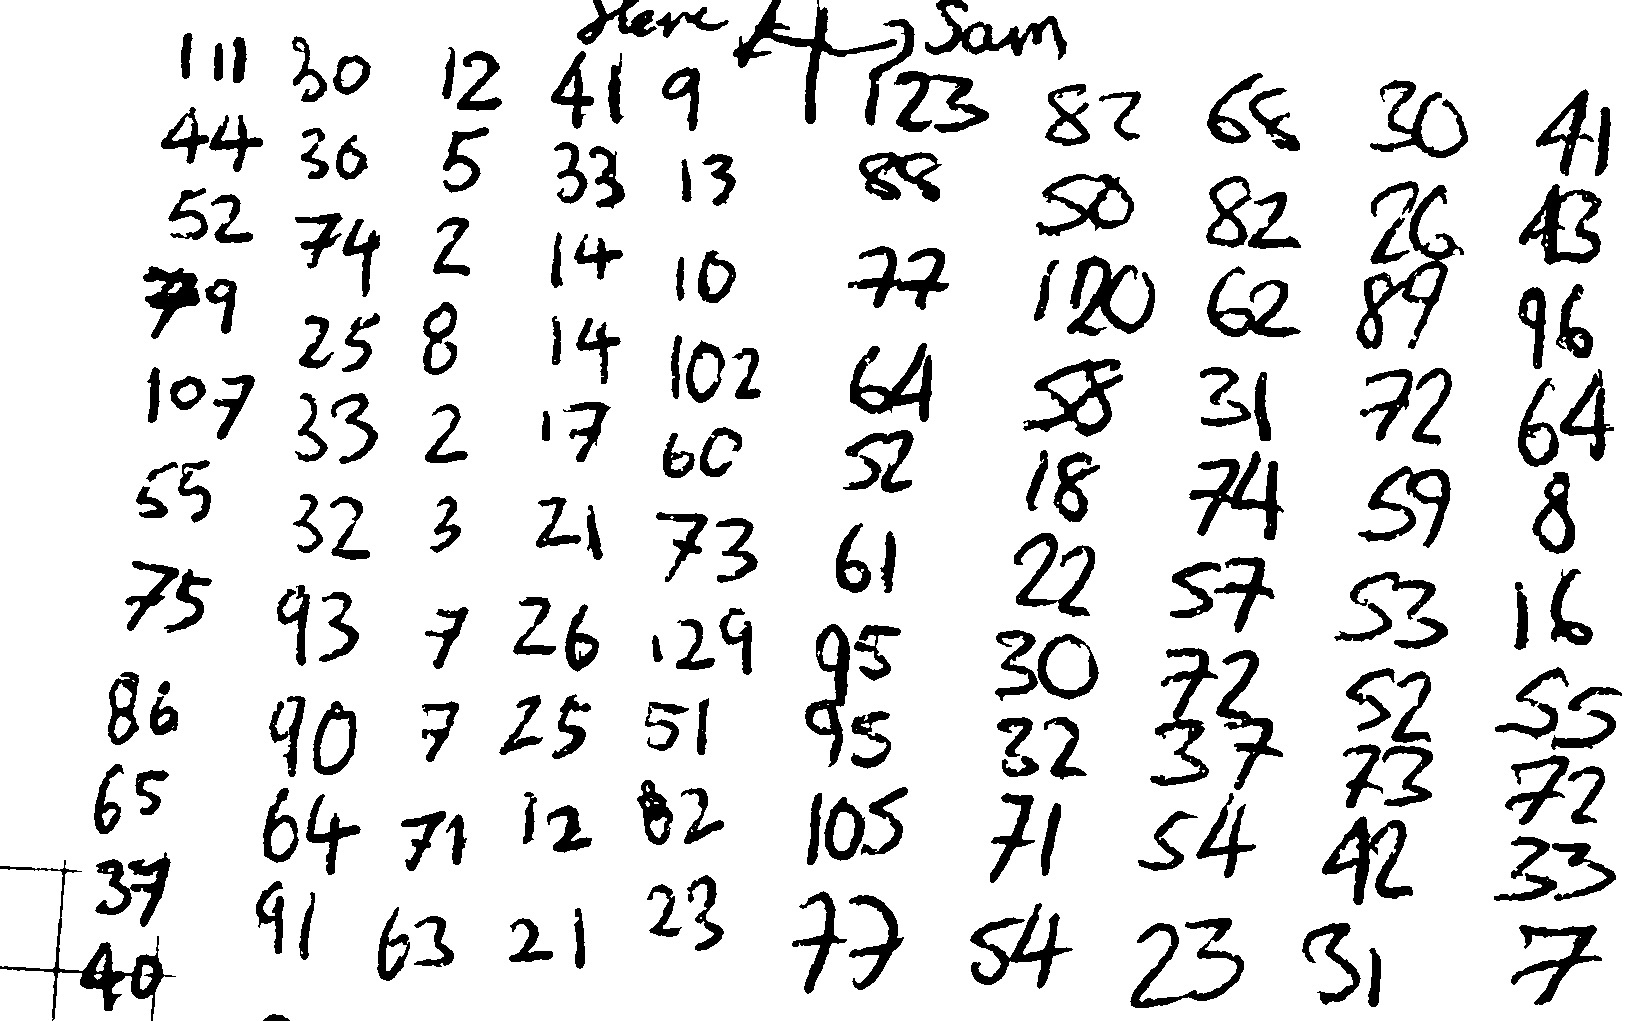 Steve ← | → Sam
111 30 12 41 9 123 82 68 30 41
44 30 5 33 13 88 50 82 26 43
52 74 2 14 10 77 120 62 89 96
79 25 8 14 102 64 58 31 72 64
107 33 2 17 60 52 18 74 59 8
55 32 3 21 73 61 22 57 53 16
75 93 7 26 129 95 30 72 52 55
86 90 7 25 51 95 32 37 73 72
65 64 71 12 82 105 71 54 42 33
37 91 63 21 23 77 54 23 31 7
40